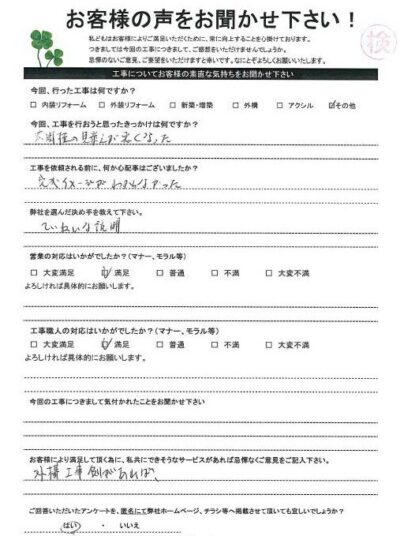 お客様の声をお聞かせ下さい！
検
私どもはお客様によりご満足いただくために、常に向上することを心掛けております。
つきましては今回の工事につきまして、ご感想をいただけませんでしょうか。
忌憚のないご意見、ご要望をいただけますと幸いです。なにとぞよろしくお願いいたします。
工事についてお客様の素直な気持ちをお聞かせ下さい
今回、行った工事は何ですか？
□ 内装リフォーム □ 外装リフォーム □ 新築・増築 □ 外構 □ アクシル ☑その他
今回、工事を行おうと思ったきっかけは何ですか？
の見栄えが悪くなった
工事を依頼される前に、何か心配事はございましたか？
完成イメージがわからなかった
弊社を選んだ決め手を教えて下さい。
ていねいな説明
営業の対応はいかがでしたか？(マナー、モラル等)
□ 大変満足 ☑ 満足 □ 普通 □ 不満 □ 大変不満
よろしければ具体的にお願いします。
工事職人の対応はいかがでしたか？(マナー、モラル等)
□ 大変満足 ☑ 満足 □ 普通 □ 不満 □ 大変不満
よろしければ具体的にお願いします。
今回の工事につきまして気付かれたことをお聞かせ下さい
お客様により満足して頂く為に、私共にできそうなサービスがあれば忌憚なくご意見をご記入下さい。
外構工事例があれば、
ご回答いただいたアンケートを、匿名にて弊社ホームページ、チラシ等へ掲載させて頂いても宜しいでしょうか？
はい ・ いいえ